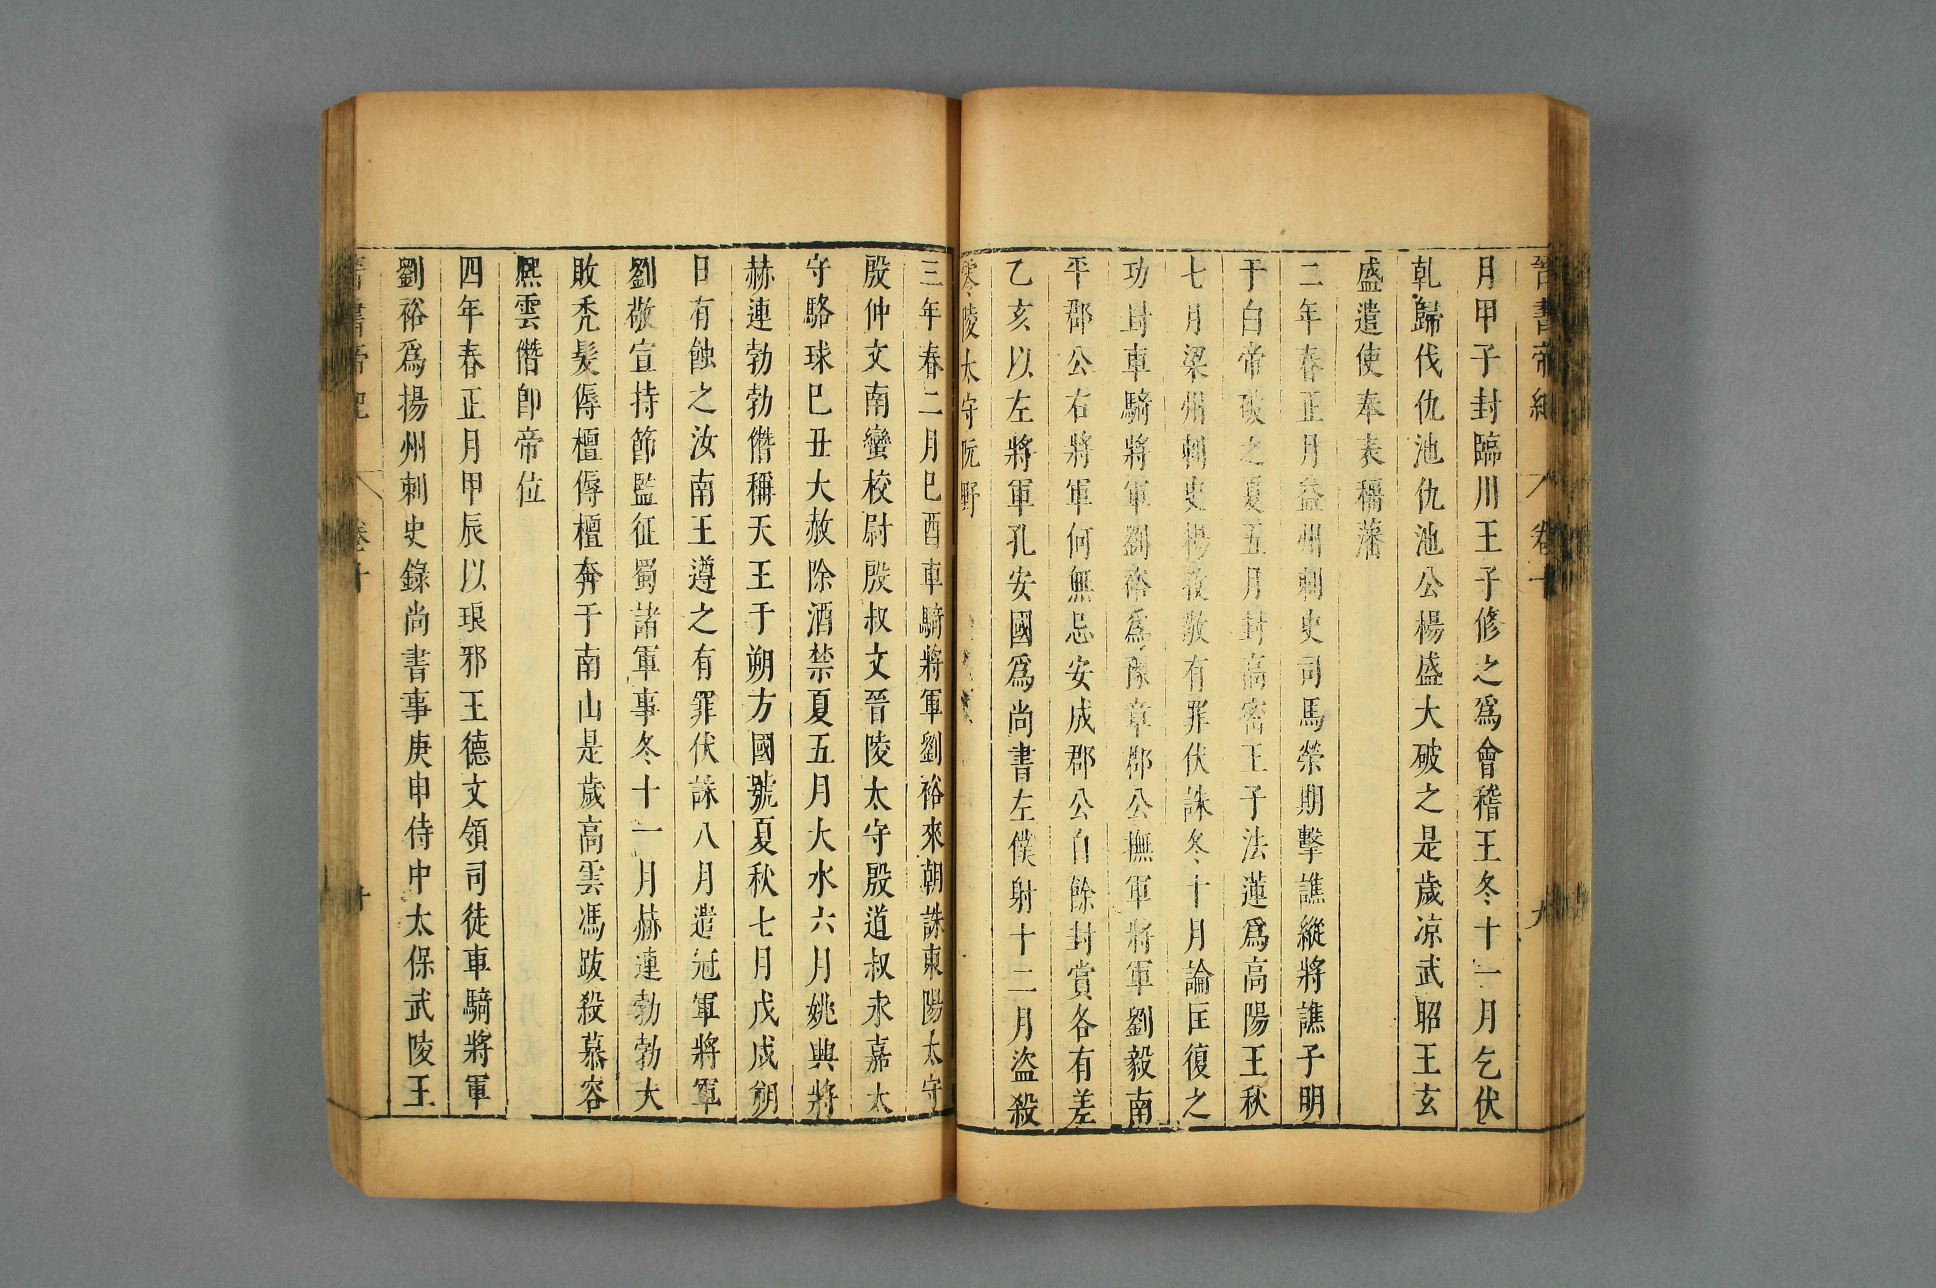 晉書帝紀 卷十 九
月甲子封臨川王子修之爲會稽王冬十一月乞伏
乾歸伐仇池仇池公楊盛大破之是歲凉武昭王玄
盛遣使奉表稱藩
二年春正月益州刺史司馬榮期擊譙縱將譙子明
于白帝破之夏五月封高密王子法蓮爲高陽王秋
七月梁州刺史楊孜敬有罪伏誅冬十月論匡復之
功封車騎將軍劉裕爲豫章郡公撫軍將軍劉毅南
平郡公右將軍何無忌安成郡公自餘封賞各有差
乙亥以左將軍孔安國爲尚書左僕射十二月盜殺
零陵太守阮野
三年春二月巳酉車騎將軍劉裕來朝誅東陽太守
殷仲文南蠻校尉殷叔文晉陵太守殷道叔永嘉太
守駱球巳丑大赦除酒禁夏五月大水六月姚興將
赫連勃勃僭稱天王于朔方國號夏秋七月戊戌朔
日有蝕之汝南王遵之有罪伏誅八月遣冠軍將軍
劉敬宣持節監征蜀諸軍事冬十一月赫連勃勃大
敗禿髮傉檀傉檀奔于南山是歲高雲馮跋殺慕容
熙雲僭卽帝位
四年春正月甲辰以琅邪王德文領司徒車騎將軍
劉裕爲揚州刺史錄尚書事庚申侍中太保武陵王
晉書帝紀 卷十 十